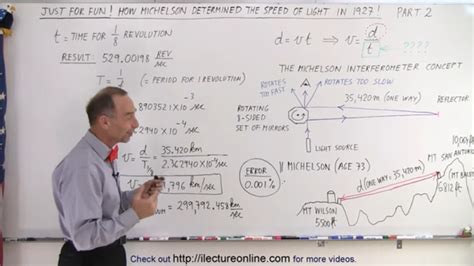 JUST FOR FUN! HOW MICHELSON DETERMINED THE SPEED OF LIGHT IN 1927! PART 2
t = TIME FOR 1/8 REVOLUTION
d = vt ⇒ v = d/t ← ????
RESULT: 529.00198 REV/sec
T = 1/f (= PERIOD FOR 1 REVOLUTION)
THE MICHELSON INTERFEROMETER CONCEPT
ROTATES TOO FAST
ROTATES TOO SLOW
890352 1 × 10⁻³ sec
35,420m (ONE WAY)
REFLECTOR
ROTATING 8-SIDED SET OF MIRRORS
2940 × 10⁻⁴ sec
LIGHT SOURCE
v = d/T1/8 = 35.420 km / 2.362940 × 10⁻⁴ sec
ERROR 0.001%
MICHELSON (AGE 73)
v = 1,796 km/sec
= 299,792.458 km/sec
d (ONE WAY = 35,420m)
MT SAN ANTONIO
MT WILSON
5500 ft
6812 ft
Check out http://ilectureonline.com for more videos.